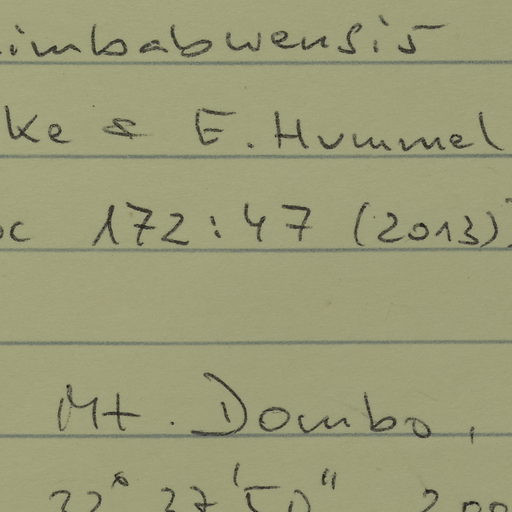 imbabwensis
ke & E. Hummel
c 172:47 (2013)
Mt. Dombo,